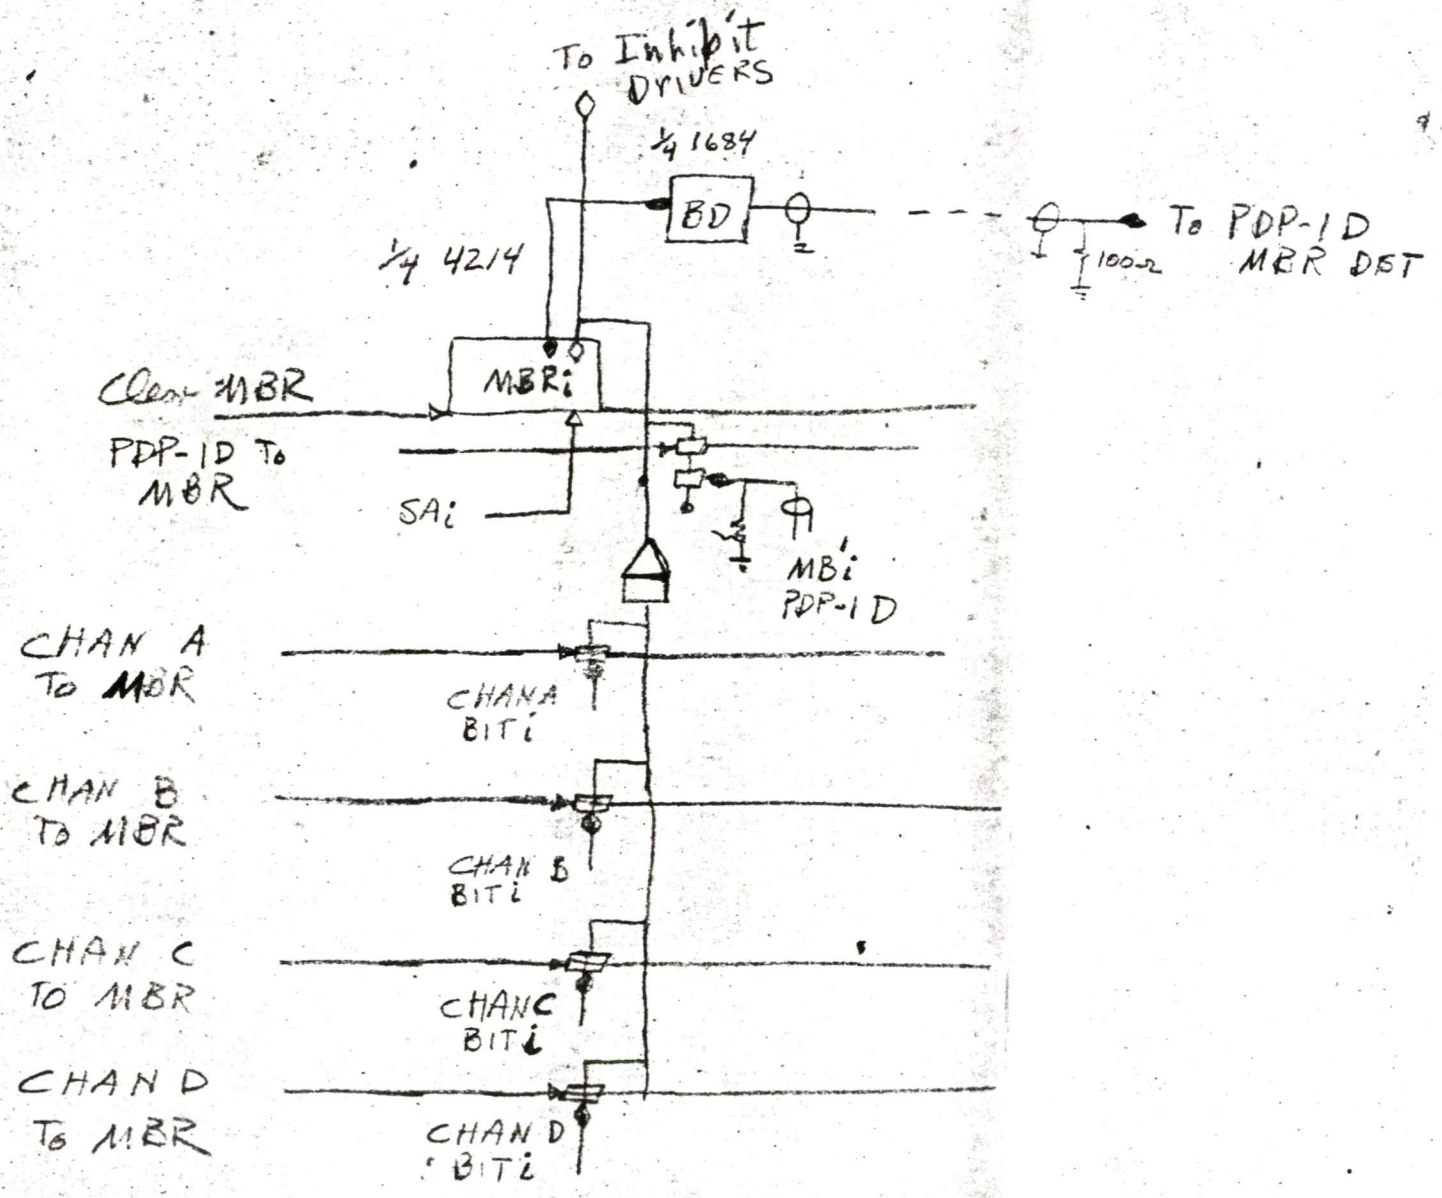 To Inhibit
DRIVERS
1/4 1684
BD
To PDP-1D
MBR DET
100Ω
1/4 4214
MBRi
Clear MBR
PDP-1D To
MBR
SAi
MB'i
PDP-1D
CHAN A
To MBR
CHAN A
BIT i
CHAN B
To MBR
CHAN B
BIT i
CHAN C
TO MBR
CHAN C
BIT i
CHAN D
To MBR
CHAN D
BIT i